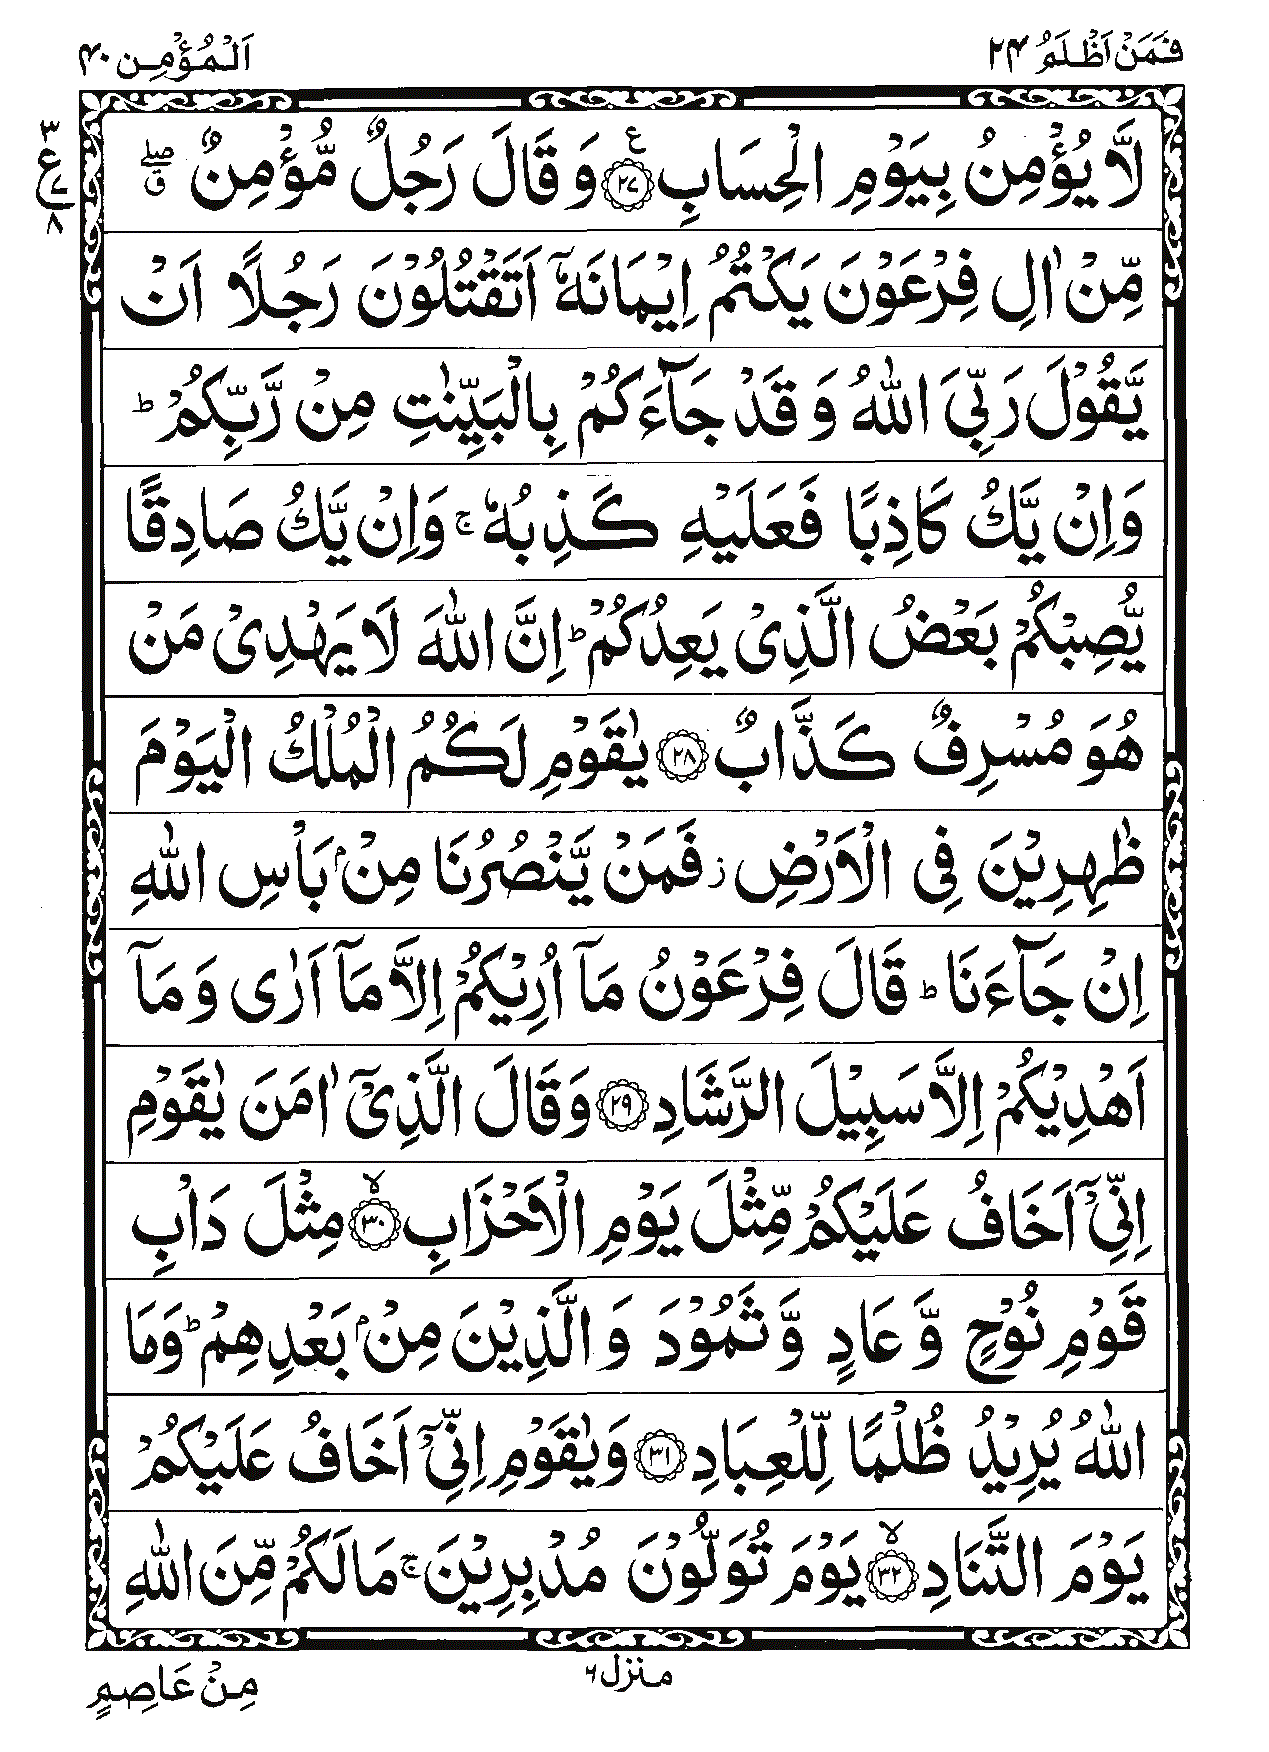 فَمَنْ اَظْلَمُ ٢٤
اَلْمُؤْمِن ٤٠
٣
ع
٨
لَّا يُؤْمِنُ بِيَوْمِ الْحِسَابِ ۝٢٧ۧ وَ قَالَ رَجُلٌ مُّؤْمِنٌ ۖۗ
مِّنْ اٰلِ فِرْعَوْنَ يَكْتُمُ اِيْمَانَهٗۤ اَتَقْتُلُوْنَ رَجُلًا اَنْ
يَّقُوْلَ رَبِّيَ اللّٰهُ وَ قَدْ جَآءَكُمْ بِالْبَيِّنٰتِ مِنْ رَّبِّكُمْ ؕ
وَاِنْ يَّكُ كَاذِبًا فَعَلَيْهِ كَذِبُهٗ ۚ وَاِنْ يَّكُ صَادِقًا
يُّصِبْكُمْ بَعْضُ الَّذِىْ يَعِدُكُمْ ؕ اِنَّ اللّٰهَ لَا يَهْدِىْ مَنْ
هُوَ مُسْرِفٌ كَذَّابٌ ۝٢٨ يٰقَوْمِ لَكُمُ الْمُلْكُ الْيَوْمَ
ظٰهِرِيْنَ فِى الْاَرْضِ ز فَمَنْ يَّنْصُرُنَا مِنْۢ بَاْسِ اللّٰهِ
اِنْ جَآءَنَا ؕ قَالَ فِرْعَوْنُ مَاۤ اُرِيْكُمْ اِلَّا مَاۤ اَرٰى وَ مَاۤ
اَهْدِيْكُمْ اِلَّا سَبِيْلَ الرَّشَادِ ۝٢٩ وَقَالَ الَّذِىْۤ اٰمَنَ يٰقَوْمِ
اِنِّىْۤ اَخَافُ عَلَيْكُمْ مِّثْلَ يَوْمِ الْاَحْزَابِ ۝٣٠ۙ مِثْلَ دَاْبِ
قَوْمِ نُوْحٍ وَّ عَادٍ وَّ ثَمُوْدَ وَ الَّذِيْنَ مِنْۢ بَعْدِهِمْ ؕ وَمَا
اللّٰهُ يُرِيْدُ ظُلْمًا لِّلْعِبَادِ ۝٣١ وَيٰقَوْمِ اِنِّىْۤ اَخَافُ عَلَيْكُمْ
يَوْمَ التَّنَادِ ۝٣٢ۙ يَوْمَ تُوَلُّوْنَ مُدْبِرِيْنَ ۚ مَالَكُمْ مِّنَ اللّٰهِ
منزل ٦
مِنْ عَاصِمٍ